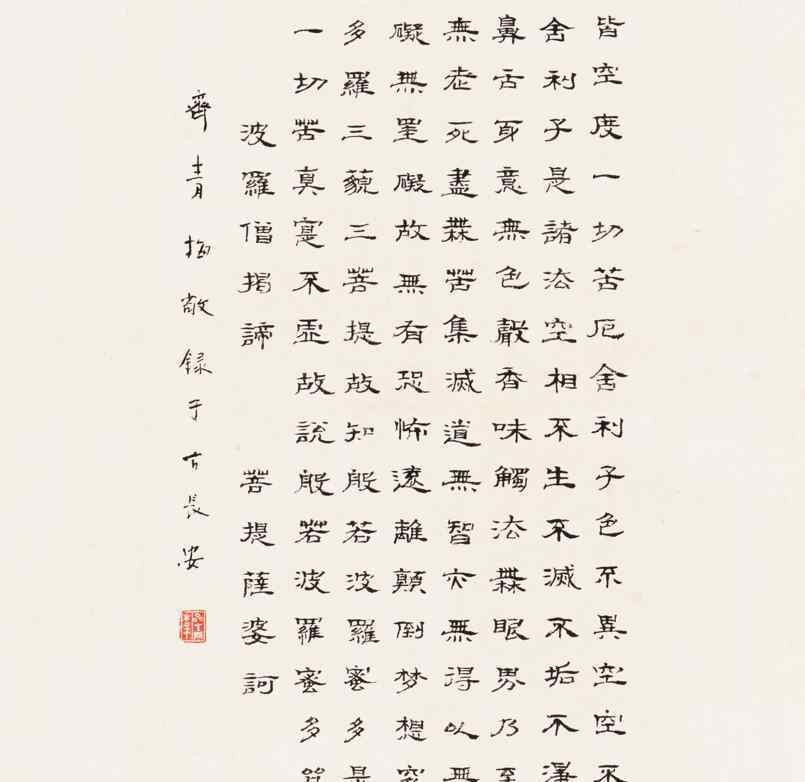 皆空度一切苦厄舍利子色不異空空不
舍利子是諸法空相不生不滅不垢不淨
鼻舌身意無色聲香味觸法無眼界乃至
無老死盡無苦集滅道無智亦無得以無
礙無罣礙故無有恐怖遠離顛倒梦想究
多羅三藐三菩提故知般若波羅蜜多是
一切苦真實不虛故說般若波羅蜜多咒
波羅僧揭諦 菩提薩婆訶
齊青梅敬録于古長安